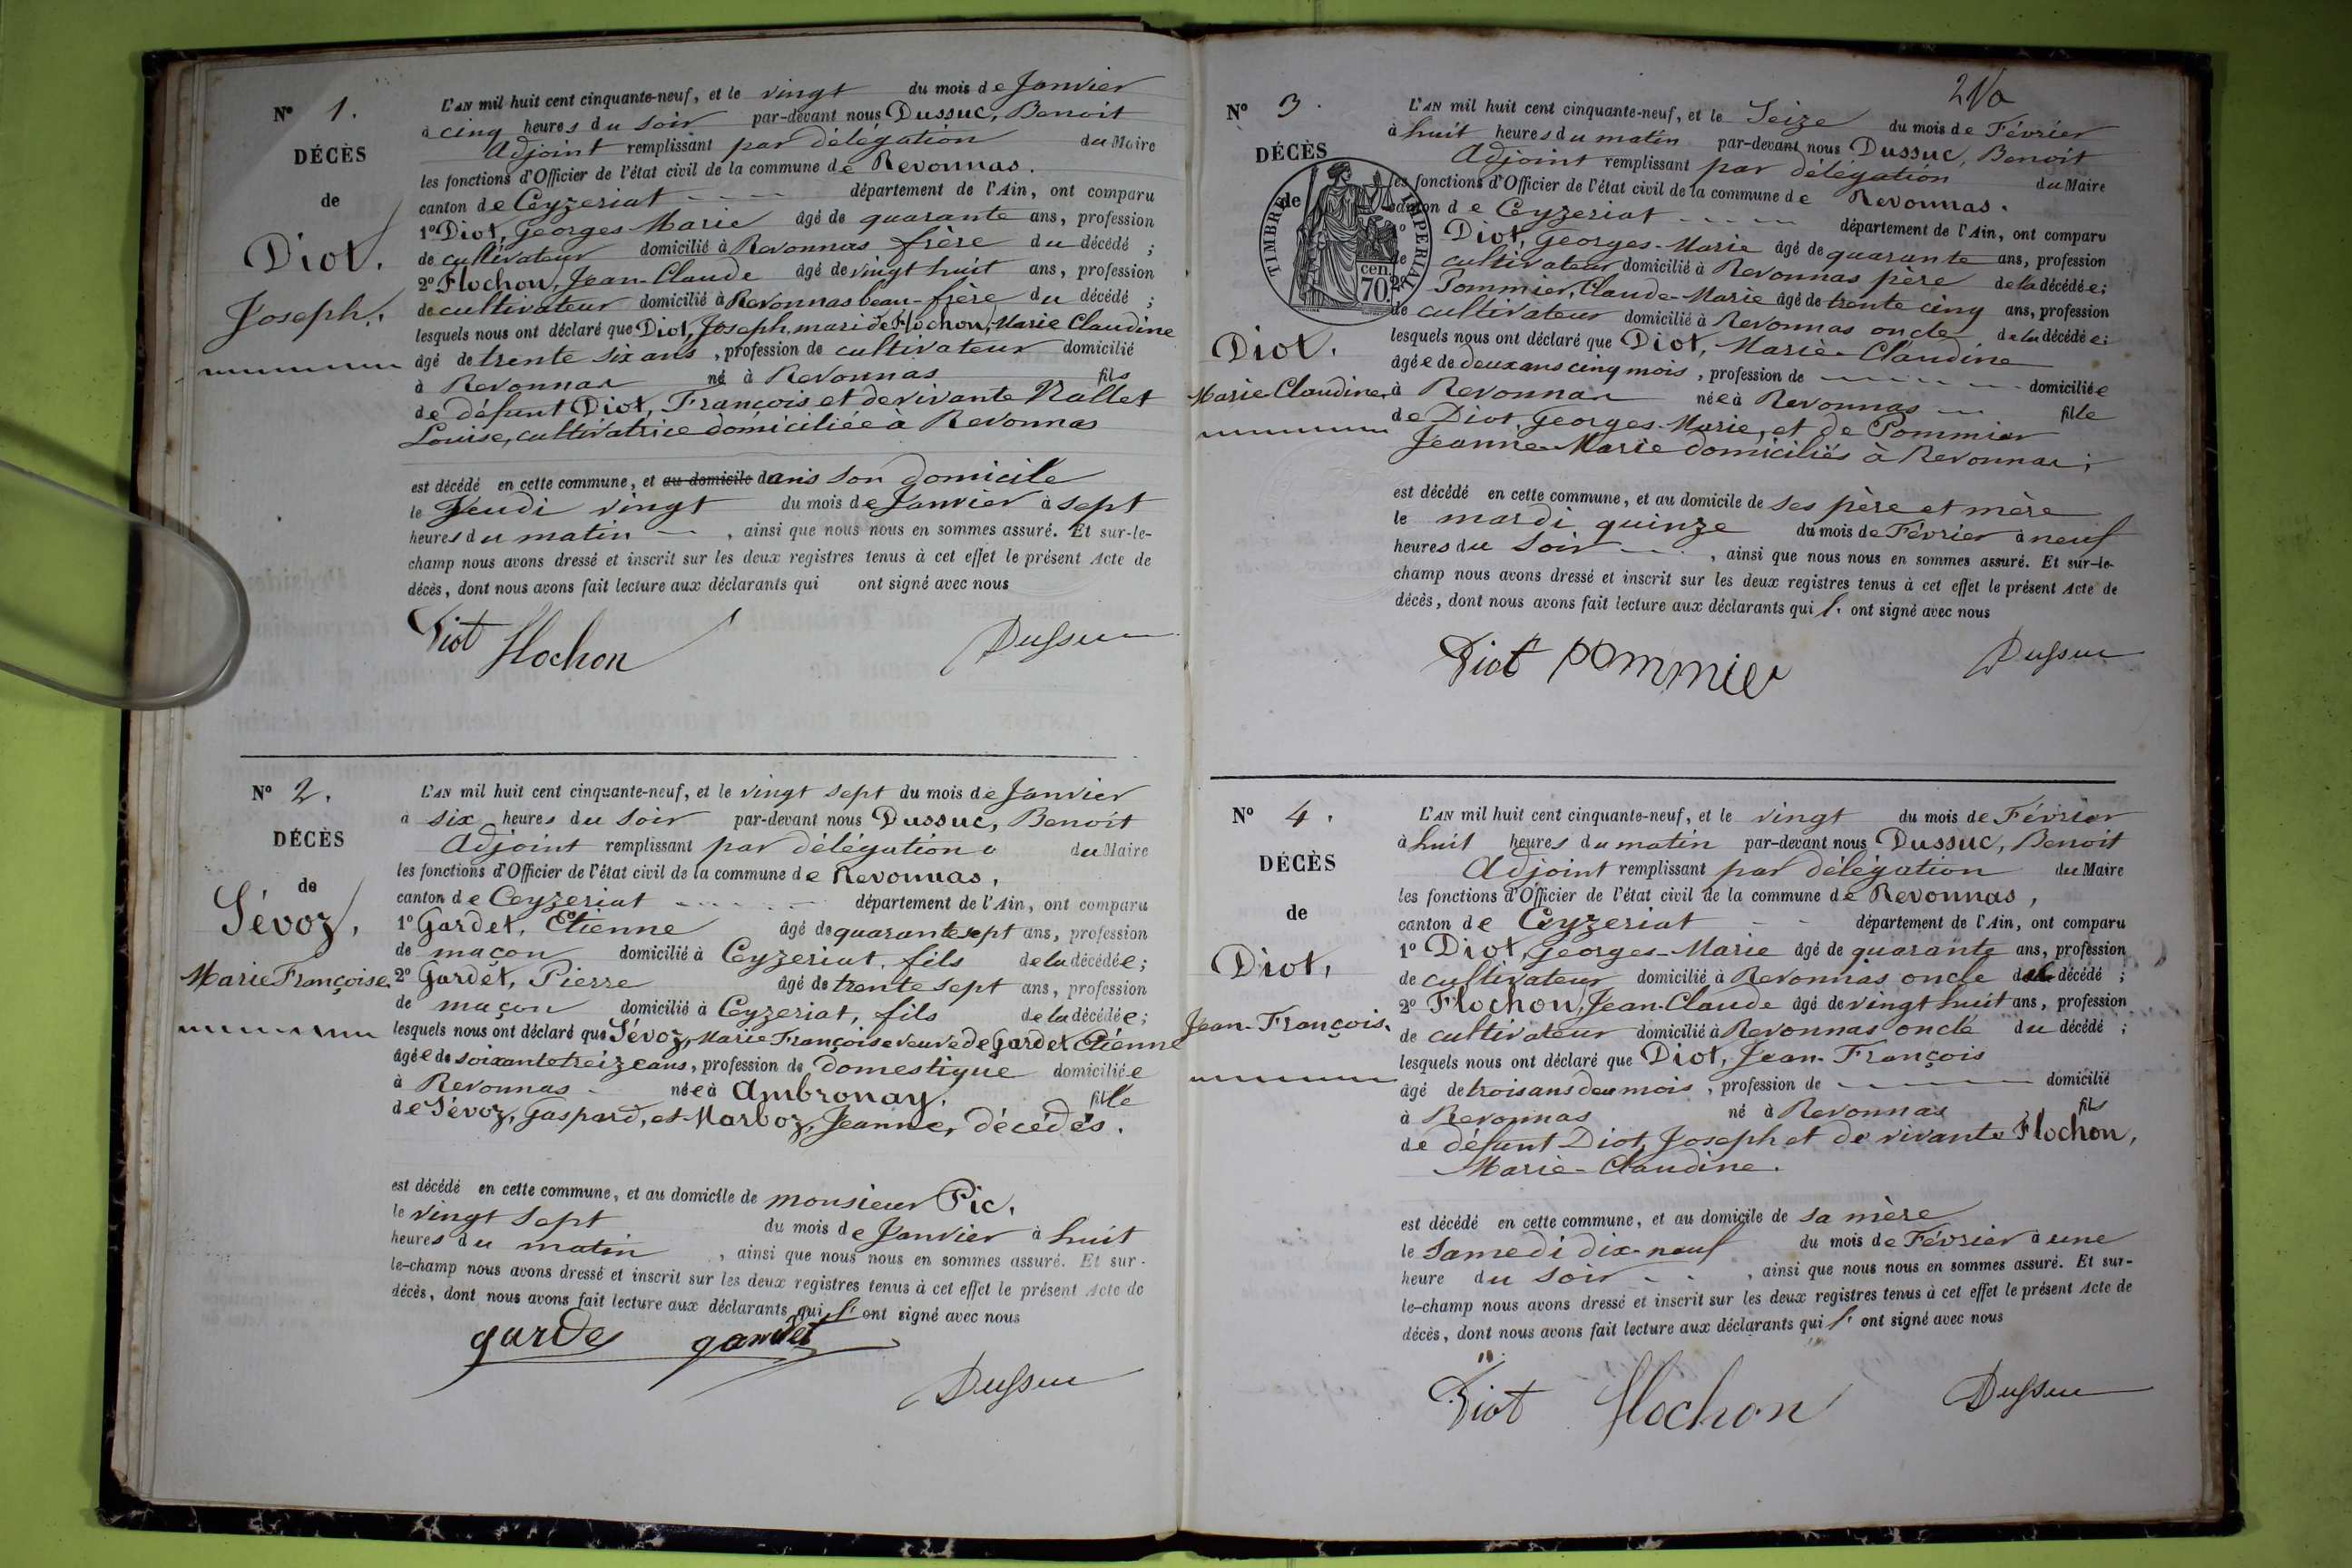 N° 1.
DÉCÈS
de
Diot.
Joseph.
L'AN mil huit cent cinquante-neuf, et le vingt du mois de Janvier
à cinq heures du soir par-devant nous Dussuc, Benoit
Adjoint remplissant par délégation du Maire
les fonctions d'Officier de l'état civil de la commune de Revonnas.
canton de Ceyzeriat département de l'Ain, ont comparu
1° Diot, Georges Marie âgé de quarante ans, profession
de cultivateur domicilié à Revonnas frère du décédé ;
2° Flochon, Jean-Claude âgé de vingt huit ans, profession
de cultivateur domicilié à Revonnas beau-frère du décédé ;
lesquels nous ont déclaré que Diot, Joseph, mari de Flochon, Marie Claudine
âgé de trente six ans, profession de cultivateur domicilié
à Revonnas né à Revonnas fils
de défunt Diot, François et de vivante Nallet
Louise, cultivatrice domiciliée à Revonnas
est décédé en cette commune, et au domicile dans son domicile
le Jeudi vingt du mois de Janvier à sept
heures du matin, ainsi que nous nous en sommes assuré. Et sur-le-
champ nous avons dressé et inscrit sur les deux registres tenus à cet effet le présent Acte de
décès, dont nous avons fait lecture aux déclarants qui ont signé avec nous
Diot Flochon Dussuc
N° 2.
DÉCÈS
de
Sévoz,
Marie Françoise.
L'AN mil huit cent cinquante-neuf, et le vingt sept du mois de Janvier
à six heures du soir par-devant nous Dussuc, Benoit
Adjoint remplissant par délégation du Maire
les fonctions d'Officier de l'état civil de la commune de Revonnas,
canton de Ceyzeriat département de l'Ain, ont comparu
1° Gardet, Etienne âgé de quarante sept ans, profession
de maçon domicilié à Ceyzeriat, fils de la décédée ;
2° Gardet, Pierre âgé de trente sept ans, profession
de maçon domicilié à Ceyzeriat, fils de la décédée ;
lesquels nous ont déclaré que Sévoz, Marie Françoise veuve de Gardet, Etienne
âgée de soixante treize ans, profession de domestique domiciliée
à Revonnas née à Ambronay, fille
de Sévoz, Gaspard, et Marboz, Jeanne, décédés.
est décédé en cette commune, et au domicile de monsieur Pic,
le vingt sept du mois de Janvier à huit
heures du matin, ainsi que nous nous en sommes assuré. Et sur-
le-champ nous avons dressé et inscrit sur les deux registres tenus à cet effet le présent Acte de
décès, dont nous avons fait lecture aux déclarants qui l' ont signé avec nous
garde gardet
Dussuc
N° 3.
DÉCÈS
de
TIMBRE IMPÉRIAL
70 cen.
Diot.
Marie Claudine,
L'AN mil huit cent cinquante-neuf, et le Seize du mois de Février
à huit heures du matin par-devant nous Dussuc, Benoit
Adjoint remplissant par délégation du Maire
les fonctions d'Officier de l'état civil de la commune de Revonnas.
canton de Ceyzeriat département de l'Ain, ont comparu
1° Diot, Georges-Marie âgé de quarante ans, profession
de cultivateur domicilié à Revonnas père de la décédée ;
2° Pommier, Claude-Marie âgé de trente cinq ans, profession
de cultivateur domicilié à Revonnas oncle de la décédée ;
lesquels nous ont déclaré que Diot, Marie-Claudine
âgée de deux ans cinq mois, profession de domiciliée
à Revonnas née à Revonnas fille
de Diot, Georges-Marie, et de Pommier
Jeanne-Marie domiciliés à Revonnas ;
est décédé en cette commune, et au domicile de ses père et mère
le mardi quinze du mois de Février à neuf
heures du soir, ainsi que nous nous en sommes assuré. Et sur-le-
champ nous avons dressé et inscrit sur les deux registres tenus à cet effet le présent Acte de
décès, dont nous avons fait lecture aux déclarants qui l' ont signé avec nous
Diot pommier Dussuc
N° 4.
DÉCÈS
de
Diot,
Jean-François.
L'AN mil huit cent cinquante-neuf, et le vingt du mois de Février
à huit heures du matin par-devant nous Dussuc, Benoit
Adjoint remplissant par délégation du Maire
les fonctions d'Officier de l'état civil de la commune de Revonnas,
canton de Ceyzeriat département de l'Ain, ont comparu
1° Diot, Georges-Marie âgé de quarante ans, profession
de cultivateur domicilié à Revonnas oncle du décédé ;
2° Flochon, Jean-Claude âgé de vingt huit ans, profession
de cultivateur domicilié à Revonnas oncle du décédé ;
lesquels nous ont déclaré que Diot, Jean-François
âgé de trois ans deux mois, profession de domicilié
à Revonnas né à Revonnas fils
de défunt Diot, Joseph et de vivante Flochon,
Marie-Claudine.
est décédé en cette commune, et au domicile de sa mère
le Samedi dix-neuf du mois de Février à une
heure du soir, ainsi que nous nous en sommes assuré. Et sur-
le-champ nous avons dressé et inscrit sur les deux registres tenus à cet effet le présent Acte de
décès, dont nous avons fait lecture aux déclarants qui l' ont signé avec nous
Diot Flochon Dussuc